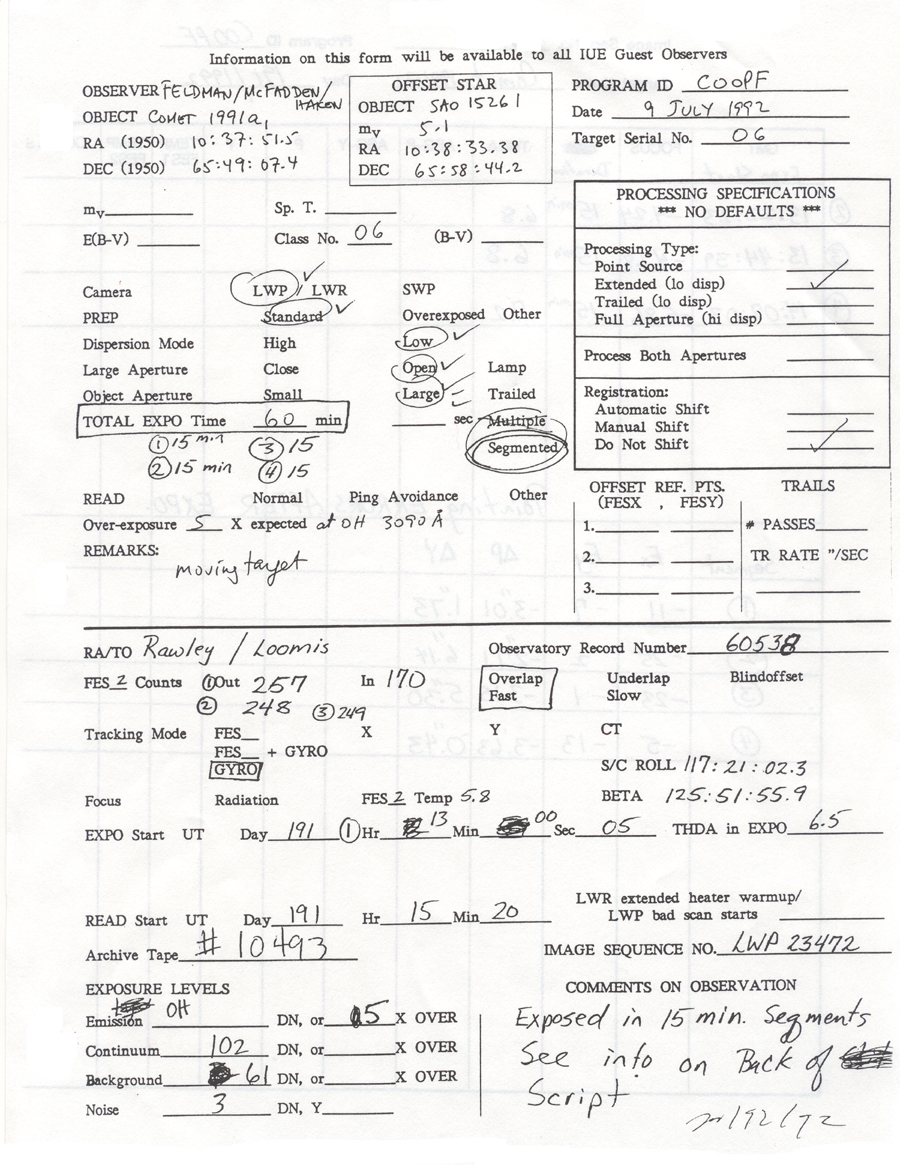 Information on this form will be available to all IUE Guest Observers
OBSERVER FELDMAN/McFADDEN/HAKEN
OBJECT COMET 1991a1
RA (1950) 10:37:51.5
DEC (1950) 65:49:07.4
OFFSET STAR
OBJECT SAO 15261
mv 5.1
RA 10:38:33.38
DEC 65:58:44.2
PROGRAM ID COOPF
Date 9 JULY 1992
Target Serial No. 06
mv Sp. T.
E(B-V) Class No. 06 (B-V)
PROCESSING SPECIFICATIONS
*** NO DEFAULTS ***
Processing Type:
Point Source
Extended (lo disp) ✓
Trailed (lo disp)
Full Aperture (hi disp)
Process Both Apertures
Registration:
Automatic Shift
Manual Shift
Do Not Shift ✓
Camera LWP ✓ LWR SWP
PREP Standard ✓ Overexposed Other
Dispersion Mode High Low ✓
Large Aperture Close Open ✓ Lamp
Object Aperture Small Large ✓ Trailed
TOTAL EXPO Time 60 min sec Multiple
① 15 min ③ 15 Segmented
② 15 min ④ 15
READ Normal Ping Avoidance Other
Over-exposure 5 X expected at OH 3090 Å
REMARKS:
moving target
OFFSET REF. PTS.
(FESX , FESY)
1.
2.
3.
TRAILS
# PASSES
TR RATE "/SEC
RA/TO Rawley / Loomis Observatory Record Number 60538
FES 2 Counts ① Out 257 In 170 Overlap Underlap Blindoffset
② 248 ③ 249 Fast Slow
Tracking Mode FES X Y CT
FES + GYRO
GYRO
S/C ROLL 117:21:02.3
Focus Radiation FES 2 Temp 5.8 BETA 125:51:55.9
EXPO Start UT Day 191 ① Hr 13 Min 00 Sec 05 THDA in EXPO 6.5
LWR extended heater warmup/
READ Start UT Day 191 Hr 15 Min 20 LWP bad scan starts
Archive Tape # 10493 IMAGE SEQUENCE NO. LWP 23472
EXPOSURE LEVELS
Emission OH DN, or 5 X OVER
Continuum 102 DN, or X OVER
Background 61 DN, or X OVER
Noise 3 DN, Y
COMMENTS ON OBSERVATION
Exposed in 15 min. Segments
See info on Back of
Script